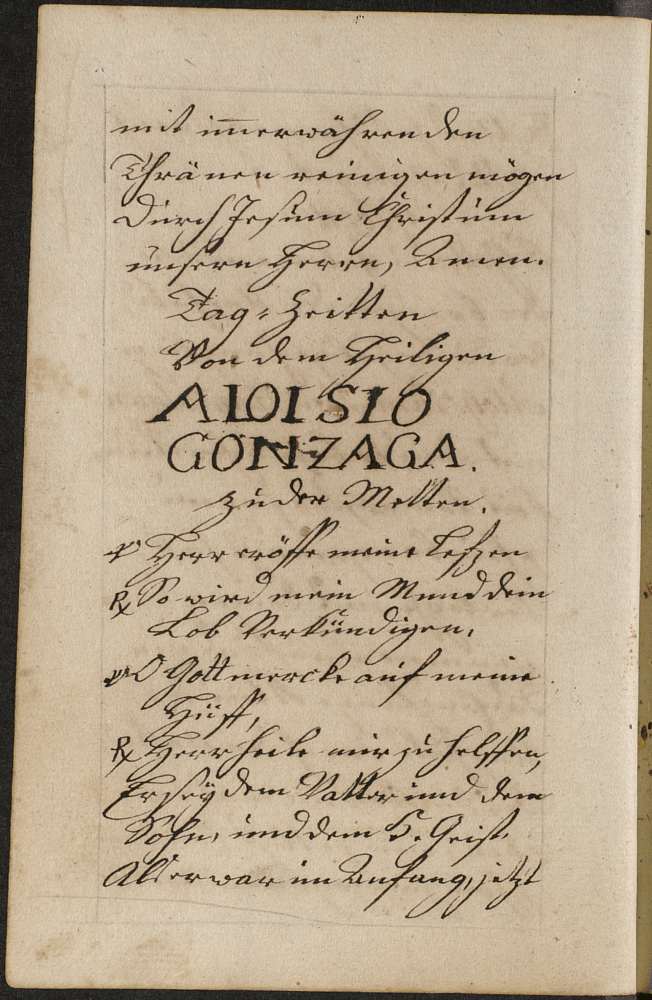 mit im̄erwährenden
Thränen reinigen mögen
durch Jesum Christum
unsern Herrn, Amen.
Tag-Zeitten
Von dem Heiligen
ALOISIO
GONZAGA.
Zu der Metten.
℣ Herr eröffe meine Lefzen
℟ So wird mein Mund dein
Lob Verkündigen.
℣ O Gott mercke auf meine
Hülff,
℟ Herr heile mir zu helffen,
Er sey dem Vatter und dem
Sohn, und dem H. Geist.
Als er war im Anfang, jetzt